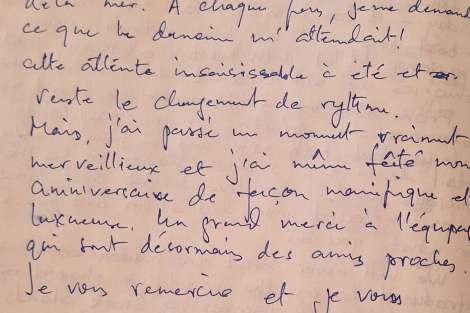 de la mer. A chaque fois, je me deman
ce que le demain m'attendait!
cette attente insaisissable à été et
reste le changement de rythme.
Mais, j'ai passé un moment vraiment
merveillieux et j'ai même fêté mon
anniversaire de façon manifique et
luxueuse. Un grand merci à l'équipag
qui sont désormais des amis proches.
Je vous remercie et je vous